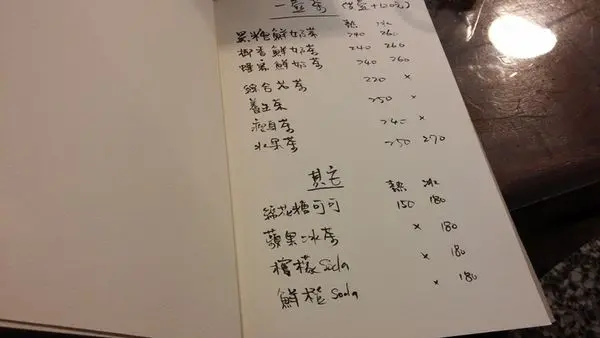 一壺茶 (加壺+100元)
熱 冰
黑糖鮮奶茶 240 260
椰香鮮奶茶 240 260
蜂蜜鮮奶茶 240 260
綜合花茶 220 ×
養生茶 250 ×
瘦身茶 240 ×
水果茶 250 270
其它
熱 冰
綿花糖可可 150 180
蘋果冰茶 × 180
檸檬Soda × 180
鮮橙Soda × 180